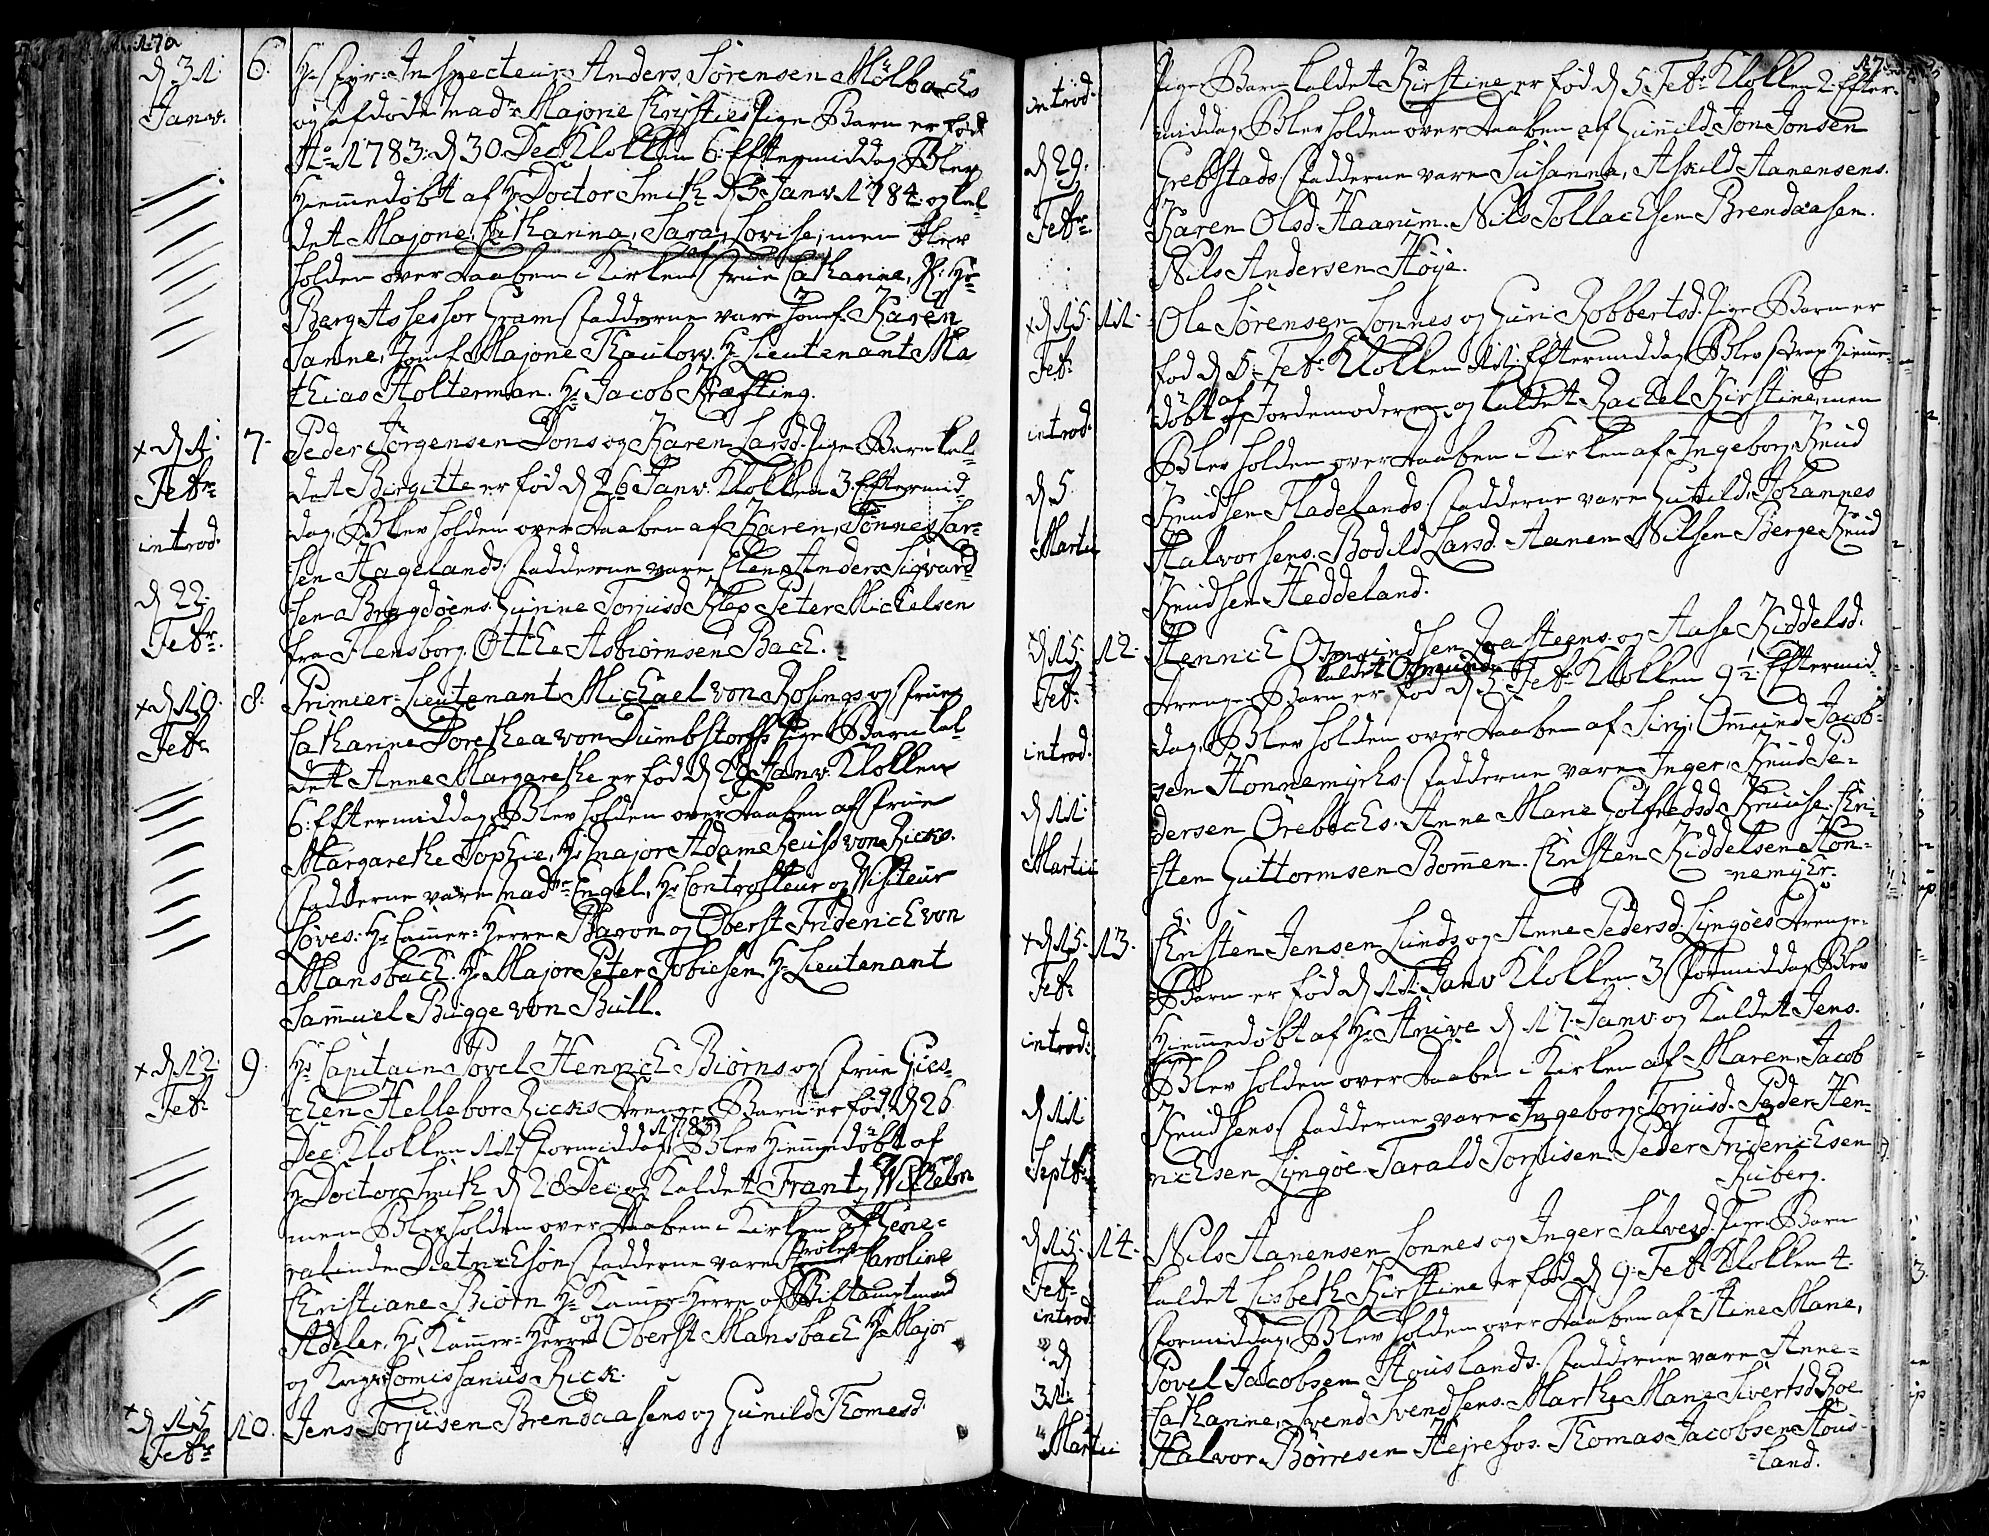 170
d 31. Janv. 6. Hr. Fyr-Inspecteur Anders Sørensen Mölbachs
og afdøde Madme Majone Chrystie Pige Barn er fød
Ao 1783: d 30. Dec. Klokken 6. Eftermiddag Blev
Hiemedøbt af Hr. Doctor Smith d 3 Janv. 1784. og kal-
det Majone, Cathanna, Sara Lovise, men blev
holden over Daaben i Kirken Frue Catharine, Hr.
Berg Assessor Grams Fadderne vare Jomf. Karen
Sanne, Jomf. Majone Thaulow. Hr. Lieutenant Ma
thias Holterman. Hr. Jacob Kræfting.
x d 1. Febr. introd. d 22. Febr. 7. Peder Jørgensen Dons og Karen Larsd. Pige Barn kal-
det Birgitte er fød d 26 Janv. Klokken 3. Eftermid-
dag, Blev holden over Daaben af Karen, Tønnes Lar-
sen Hagelands. Fadderne vare Elen, Anders Sigvard-
sen Bragdøens. Gunne Torjusd. Klep. Peter Mickelsen
fra Flensborg. Otthe Asbiørnsen Bach.
x d 10. Febr. 8. Primier-Lieutenant Michael von Rosings og Frue
Cathanne Dorethea von Dumbstorffs Pige Barn kal-
det Anne Margarethe er fød d 29 Janv. Klokken
6. Eftermiddag, Blev holden over Daaben af Frue
Margarethe Sophie, Hr. Major Adam Reuss von Ricks.
Fadderne vare Madme Engel, Hr. Controlleur og Visiteur
Løves. Hr. Cammer-Herre Baron og Oberst Friderich von
Mansbach. Hr. Major Peter Tobiesen. Hr. Lieutenant
Sammuel Bugge von Bull.
x d 12. Febr. 9. Hr. Capitain Povel Hennich Biørns og Frue Gies-
chen Hellebor Ricks Drenge Barn er fød d 26
Dec. Klokken 11. Formiddag 1783 Blev Hiemedøbt af
Hr. Doctor Smith d 28 Dec. og kaldet Frantz Wilhelm
men Blev holden over Daaben i Kirken af Gene-
ralinde Dietrichsøn Fadderne vare Frøken Caroline
Christiane Biørn Hr. Kamer-Herre og Stiftamptmand
Adeler. Hr. Kammer-Herre og Oberst Mansbach Hr. Major
og Krigs Comissarius Rick.
x d 15 Febr. 10. Jens Torjusen Brendaasens og Gunild Thomesd.
introd. d 29. Febr. Pige Barn kaldet Kirstine er fød d 5 Febr. Klokken 2. Efter-
middag, Blev holden over Daaben af Gunild Jon Jonsen
Grebstads. Fadderne vare Susanna, Askild Aanensens.
Karen Olsd. Haanim. Nils Tollachsen Brendaasen.
Nils Andersen Høje.
x d 15 Febr. introd. d 5 Martii 11. Ole Sørensen Sonnes og Guri Robbertsd. Pige Barn er
fød d 5. Febr. Klokken 11. Eftermiddag Blev strax Hieme-
døbt af Jordemoderen og kaldet Rachel Kirstine, men
Blev holden over Daaben i Kirken af Ingeborg Knud
Knudsen Fladelands. Fadderne vare Gunild, Johannes
Halvorsens. Bodild Larsd. Aanen Nilsen Berge Knud
Knudsen Heddeland.
x d 15. Febr. introd. d 11. Martii 12. Hennich Osmundsen Faasteens og Aase Kiddelsd.
kaldet Osmund
Drenge Barn er fød d 5. Febr. Klokken 9½ Eftermid-
dag, Blev holden over Daaben af Siri, Omund Jacob-
sen Honnemyhrs. Fadderne vare Inger, Knud Pe-
dersen Ørebechs. Anne Marie Gotfredsd. Kruuse. Chri-
sten Guttormsen Bommen. Christen Kiddelsen Hon-
nemyhr.
x d 15. Febr. introd. d 11 Septbr. 13. Christen Jensen Lunds og Anne Pedersd. Lyngøes Drenge-
Barn er fød d 11. Janv. Klokken 3 Formiddag Blev
Hiemedøbt af Hr. Anive d 17. Janv. og kaldet Jens.
Blev holden over Daaben i Kirken af Maren, Jacob
Knudsens. Fadderne vare Ingeborg Torjusd. Peder Hen-
nichsen Lyngøe Tarald Torjusen. Peder Friderichsen
Kuberg.
d 15. Febr. introd. d 31. Martii 14. Nils Aanensen Sonnes og Inger Salvesd. Pige Barn
kaldet Lisbeth Kirstine er fød d 9. Febr. Klokken 4.
Formiddag, Blev holden over Daaben af Stine Marie,
Povel Jacobsen Houslands. Fadderne vare Anne-
Cathanne, Svend Svendsens. Marthe Marie Sivertsd. Roe
Halvor Børresen Hejrefos. Thomas Jacobsen Hous-
land.